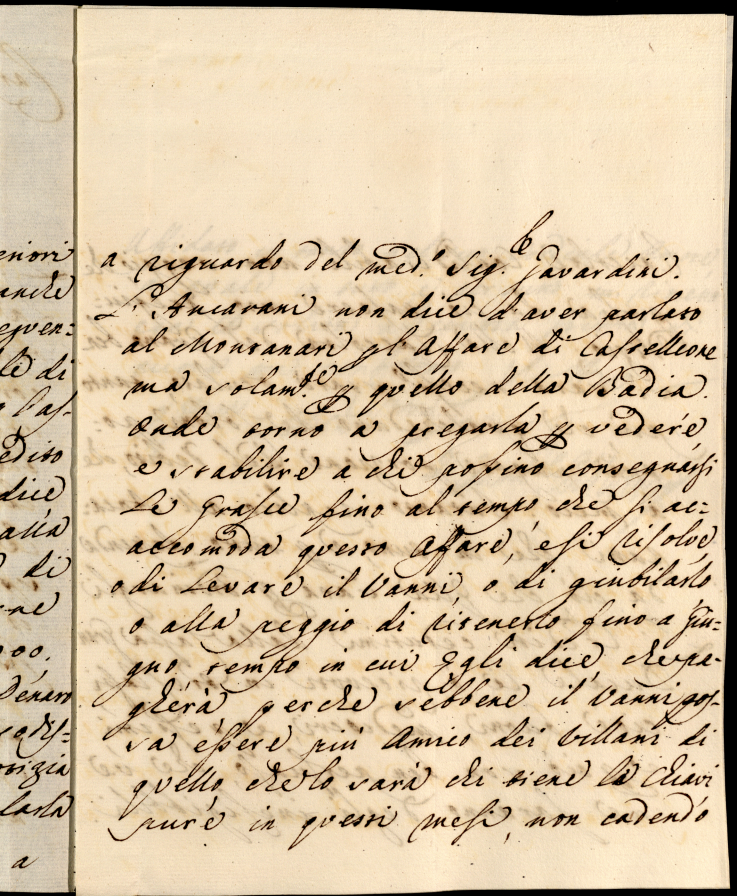 eriori
anche
le di
edito
dice
alla
di
ne
00.
Denaro
a
a riguardo del med.º Sig.re Gavardini.
L'Ancarani non dice d'aver parlato
al Montanari pl Affare di Castelleone
ma solam.te p quello della Badia.
Onde torno a pregarla p vedere,
e stabilire a chi possino consegnarsi
Le Grascie fino al tempo che si ac=
accomoda questo Affare, e si risolve,
o di Levare il Vanni, o di giubilarlo
o alla peggio di ritenerlo fino a Giu=
gno, tempo in cui Egli dice, che pa-
gherà perche sebbene il Vanni pos-
sa essere più Amico dei Villani di
quello che lo sarà chi tiene le Chiavi
pure in questi mesi, non cadendo